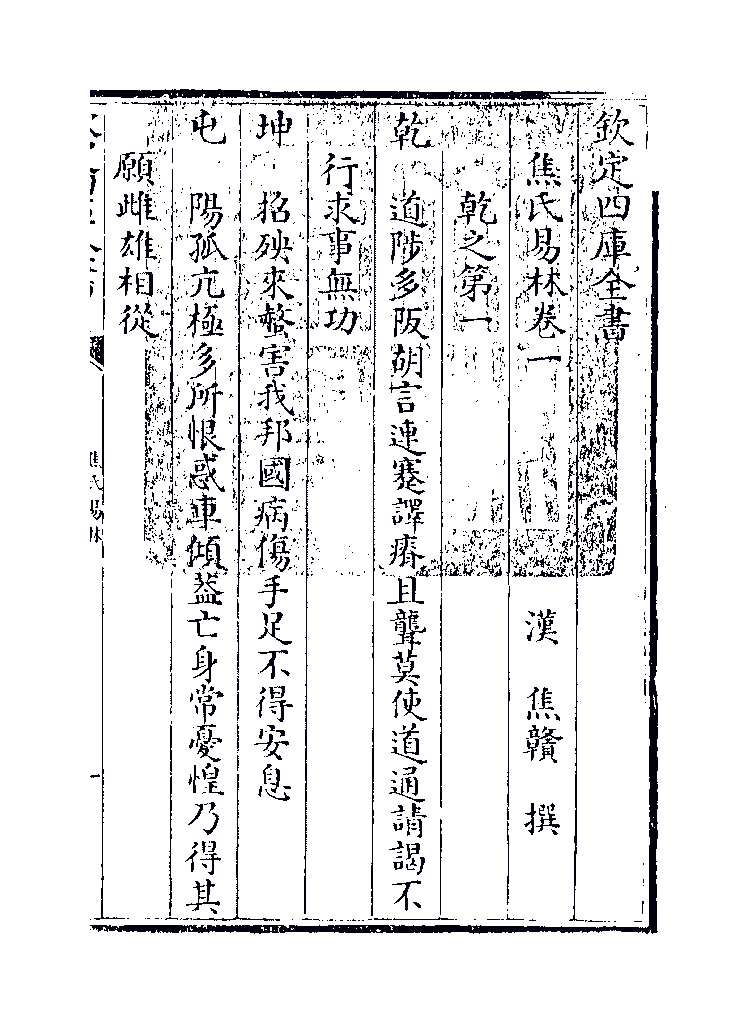 欽定四庫全書
焦氏易林卷一
漢　焦贛　撰
乾之第一
乾　道陟多阪胡言連蹇譯瘖且聾莫使道通請謁不
行求事無功
坤　招殃來螫害我邦國病傷手足不得安息
屯　陽孤亢極多所恨惑車傾葢亡身常憂惶乃得其
願雌雄相從
焦氏易林
一